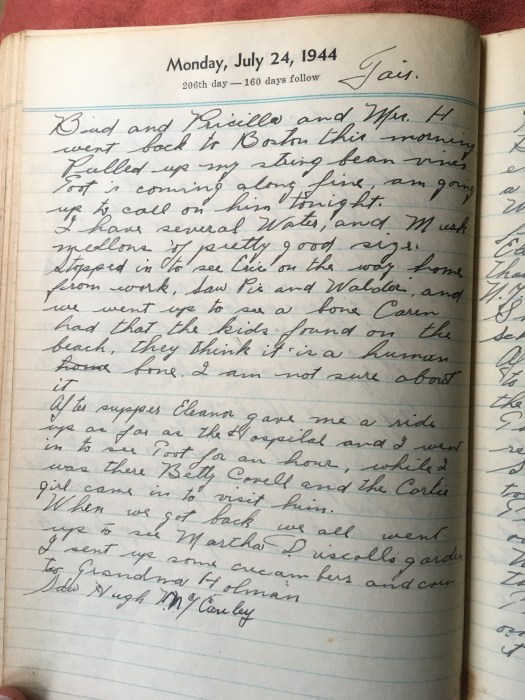 Monday, July 24, 1944
206th day — 160 days follow
Fair.
Bud and Pricilla and Mrs. H
went back to Boston this morning
Pulled up my string bean vines
Toot is coming along fine, am going
up to call on him tonight.
I have several Water, and Musk
mellons of pretty good size.
Stopped in to see Eric on the way home
from work, Saw Pic and Walder, and
we went up to see a bone Caren
had that the kids found on the
beach, they think it is a human
bone. I am not sure about
it
After supper Eleanor gave me a ride
up as far as the Hospital and I went
in to see Toot for an hour, while I
was there Betty Covell and the Carlie
girl came in to visit him.
When we got back we all went
up to see Martha Driscolls garden
I sent up some cucumbers and corn
to Grandma Holman
Saw Hugh